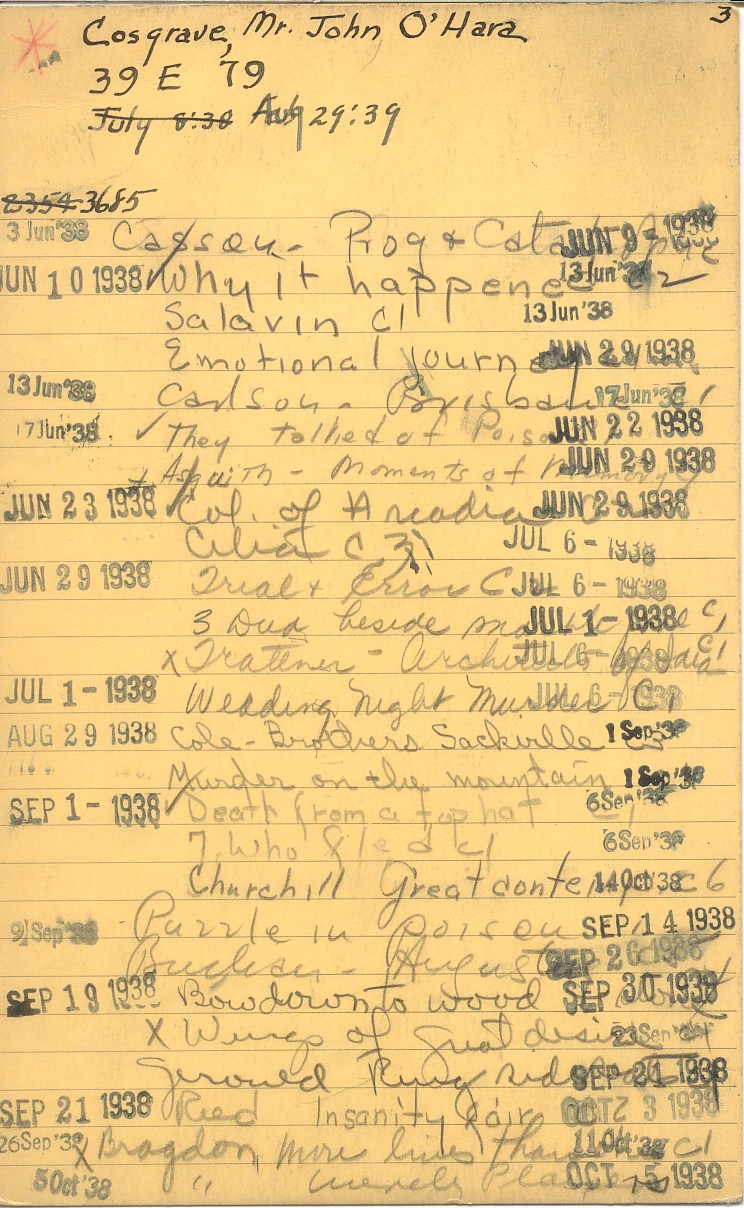 3
Cosgrave, Mr. John O'Hara
39 E 79
July 8:38 Aug 29:39
2354 3685
3 Jun '38 Casson - Prog & Cata JUN 9 - 1938
JUN 10 1938 Why it happened 13 Jun '38 c2
Salavin c1 13 Jun '38
Emotional journey JUN 29 1938
13 Jun '38 Carlson - Brisbane 17 Jun '38 c1
17 Jun '38 They talked of Poison JUN 22 1938
Asquith - Moments of memory JUN 29 1938
JUN 23 1938 Col. of Arcadia JUN 29 1938
Cilia c3 JUL 6 - 1938
JUN 29 1938 Trial & Error C JUL 6 - 1938
3 Dead beside JUL 1 - 1938 c1
x Trattner - Architects of JUL 6 - 1938 c1
JUL 1 - 1938 Wedding Night Murder JUL 6 - 1938 C1
AUG 29 1938 Cole - Brothers Sackville 1 Sep '38
Murder on the mountain 1 Sep '38
SEP 1 - 1938 Death from a top hat c1 6 Sep '38
7 Who fled c1 6 Sep '38
Churchill Great contemp 14 Oct '38 c6
9 Sep '38 Puzzle in poison SEP 14 1938
Buchan - Augustus SEP 26 1938
SEP 19 1938 Bow down to wood SEP 30 1938
X Wings of great desire 23 Sep '38
Gerould Ring SEP 21 1938
SEP 21 1938 Reed Insanity fair OCT 3 1938
26 Sep '38 x Bragdon, more lives than 11 Oct '38 c1
5 Oct '38 " Merely Players OCT 5 1938